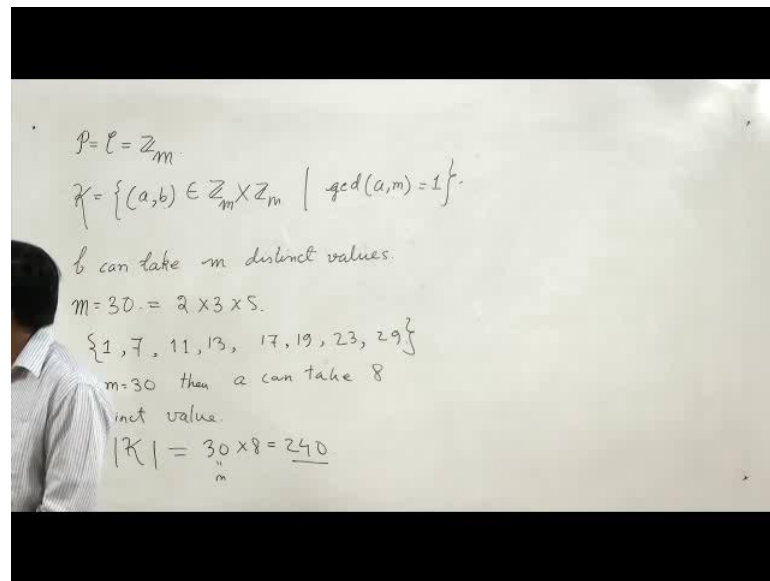 P = C = ℤ_m.
K = {(a,b) ∈ ℤ_m × ℤ_m | gcd(a,m) = 1}.
b can take m distinct values.
m = 30. = 2 × 3 × 5.
{1, 7, 11, 13, 17, 19, 23, 29}
m = 30 then a can take 8
inct value.
|K| = 30 × 8 = 240
"
m